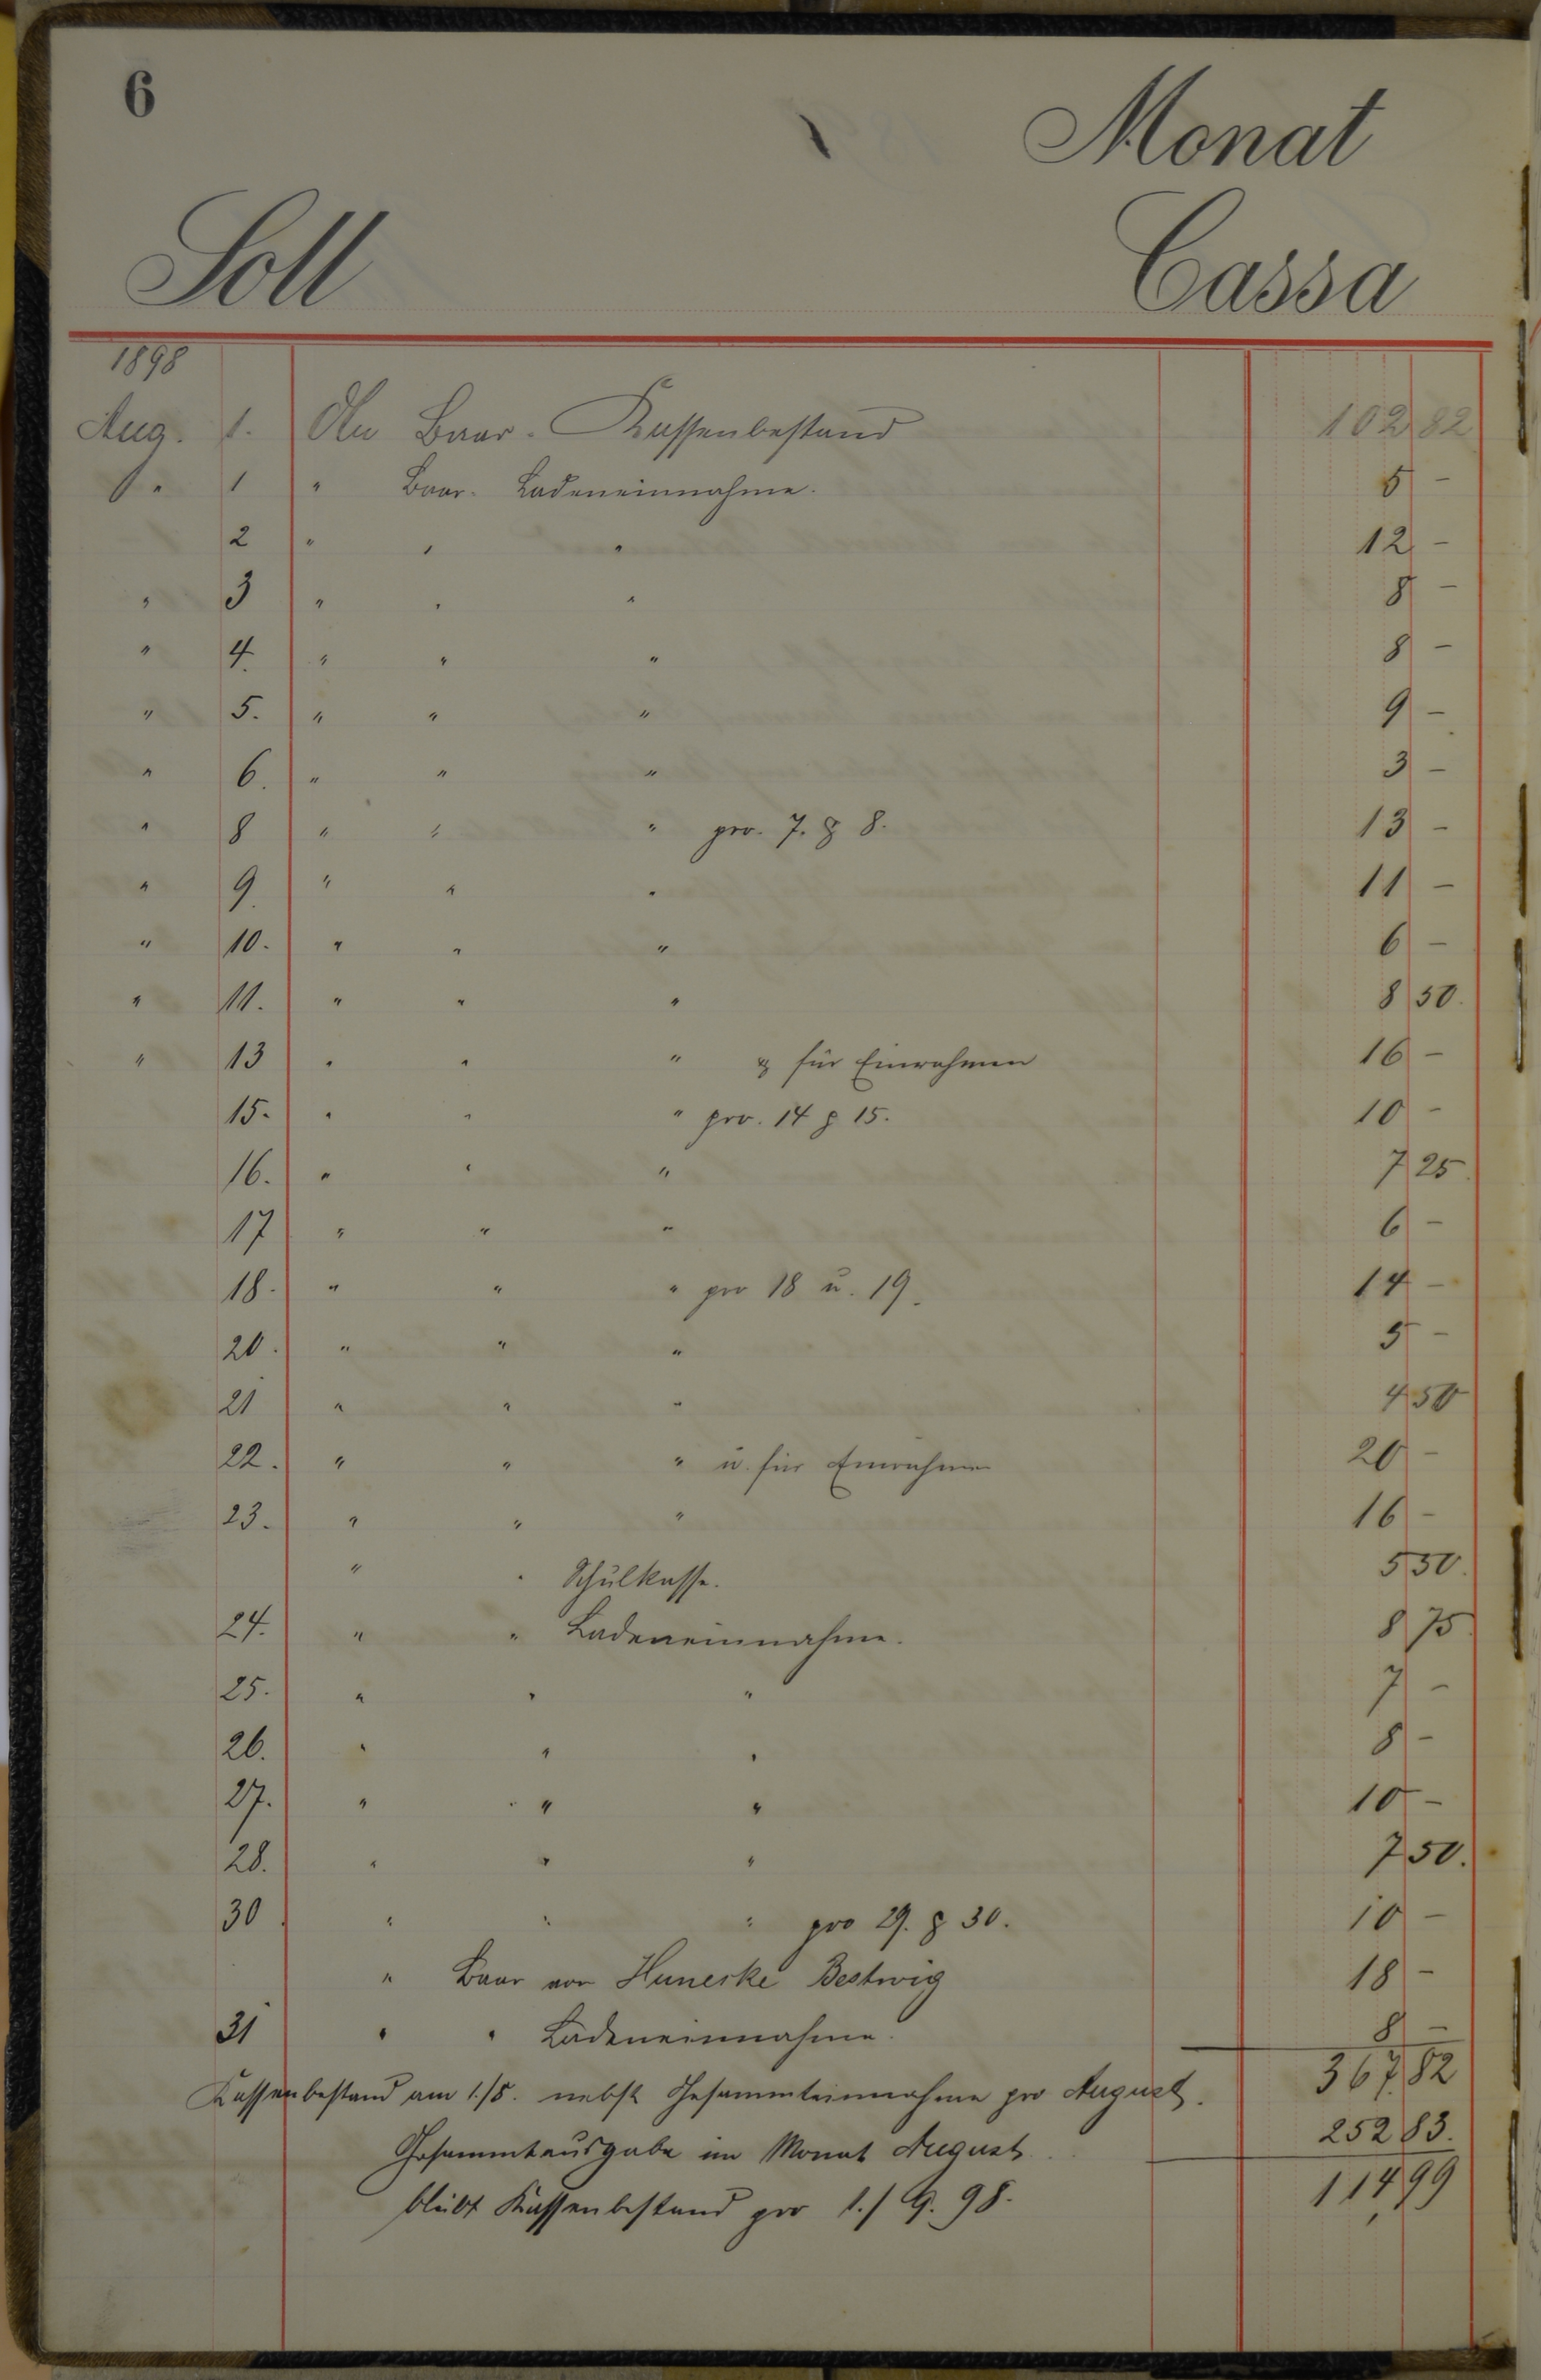 6
Monat
Soll Cassa
1898
Aug. 1. An Baar-Kassenbestand 102 82
" 1 " Baar-Ladeneinnahme. 5 -
2 " " " 12 -
" 3 " " " 8 -
" 4. " " " 8 -
" 5. " " " 9 -
" 6. " " " 3 -
" 8 " " " pro. 7. & 8. 13 -
" 9. " " " 11 -
" 10. " " " 6 -
" 11. " " " 8 50.
" 13 " " " & für Einrahmen 16 -
15. " " " pro. 14 & 15. 10 -
16. " " " 7 25
17 " " " 6 -
18. " " " pro 18 u. 19. 14 -
20. " " " 5 -
21 " " " 4 50
22. " " " u. für Einrahmen 20 -
23. " " " 16 -
" " Schulkasse. 5 50.
24. " " Ladeneinnahme. 8 75
25. " " " 7 -
26. " " " 8 -
27. " " " 10 -
28. " " " 7 50.
30 " " " pro 29. & 30. 10 -
" Baar von Huneske Bestwig 18 -
31 " " Ladeneinnahme. 8 -
Kassenbestand am 1./8. nebst Gesammteinnahme pro August. 367 82
Gesammtausgabe im Monat August 252 83.
bleibt Kassenbestand pro 1./9. 98. 114,99